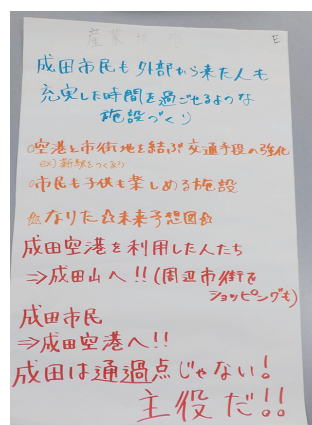 産業
E
成田市民も外部から来た人も
充実した時間を過ごせるような
施設づくり
○空港と市街地を結ぶ交通手段の強化
ex) 新駅をつくる?
○市民も子供も楽しめる施設
なりた☆未来予想図
成田空港を利用した人たち
⇒成田山へ!!(周辺市街で
ショッピングも)
成田市民
⇒成田空港へ!!
成田は通過点じゃない!
主役だ!!